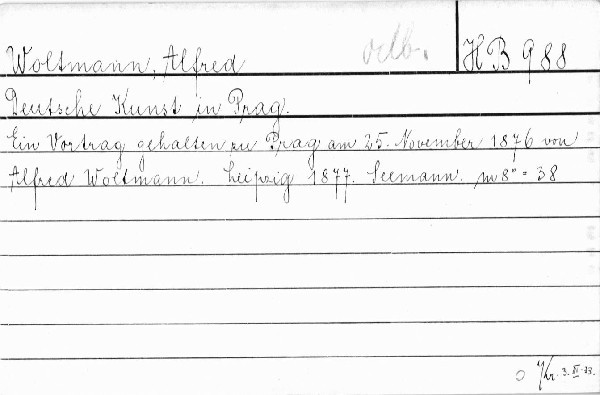 Woltmann, Alfred odb. HB 988
Deutsche Kunst in Prag.
Ein Vortrag gehalten zu Prag am 25. November 1876 von
Alfred Woltmann. Leipzig 1877. Seemann. m 8° = 38
Kr. 3. XI. 33.